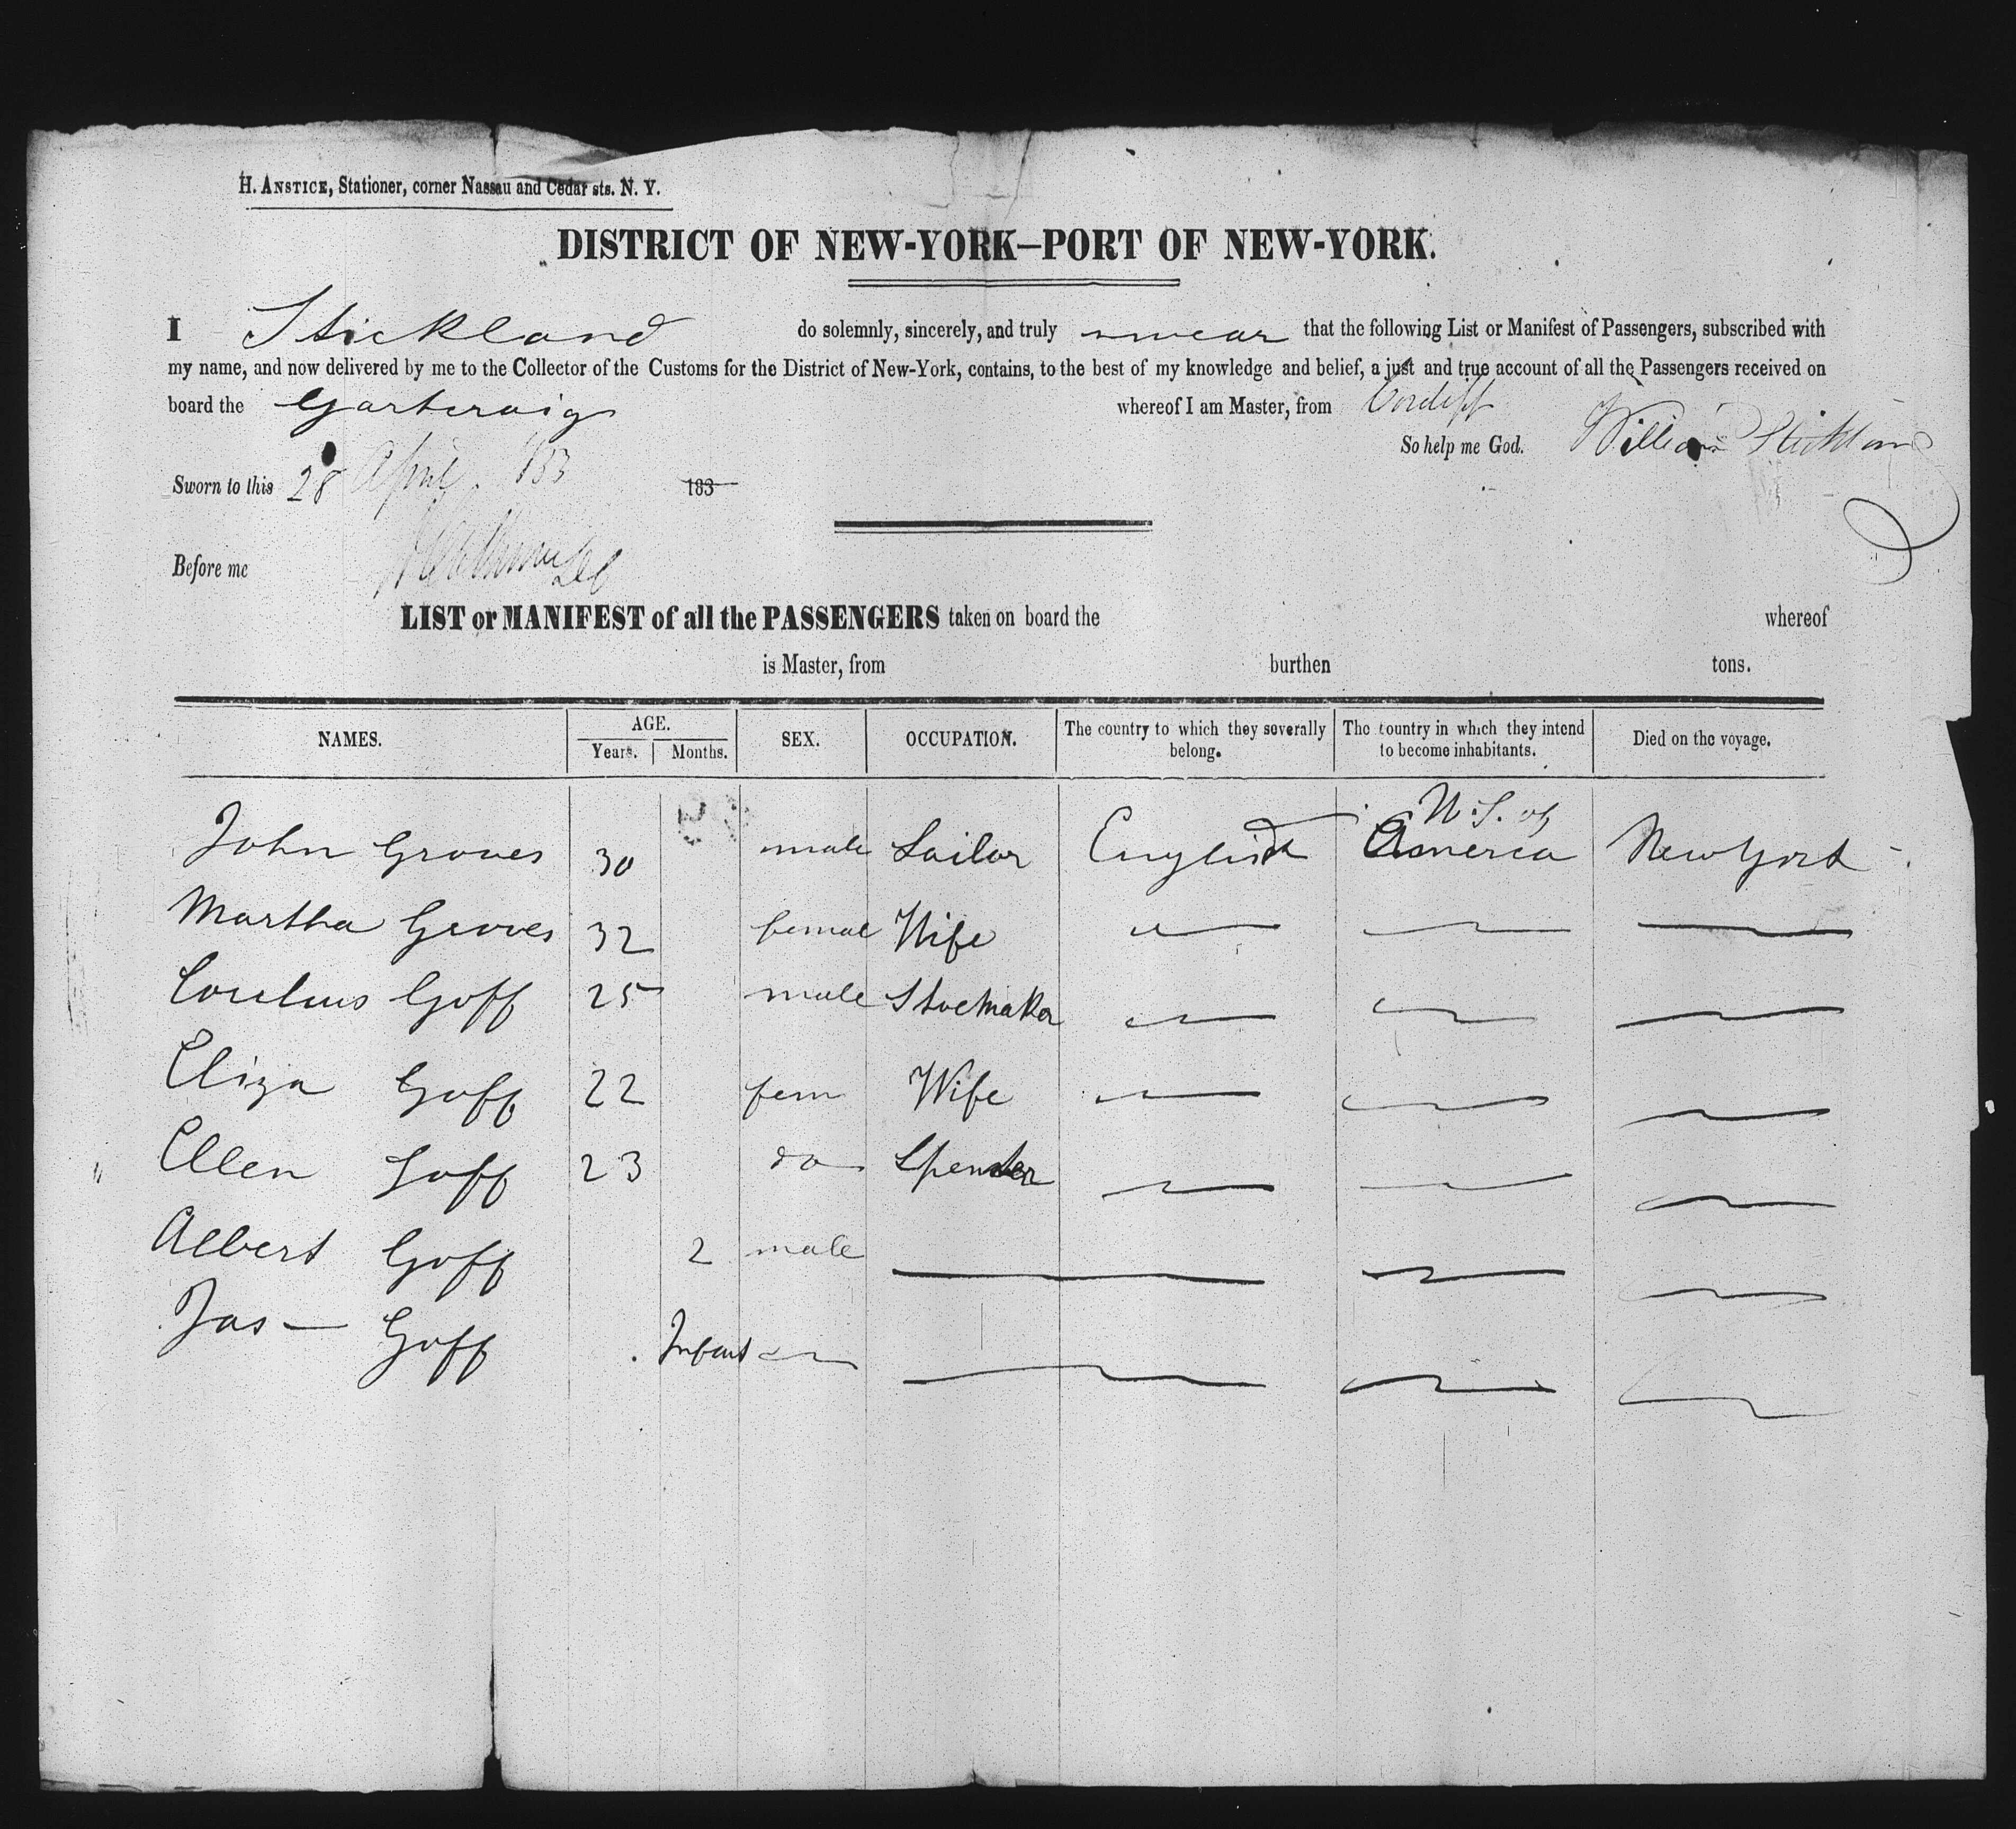 H. ANSTICE, Stationer, corner Nassau and Cedar sts. N. Y.
DISTRICT OF NEW-YORK—PORT OF NEW-YORK.
I Stickland do solemnly, sincerely, and truly swear that the following List or Manifest of Passengers, subscribed with
my name, and now delivered by me to the Collector of the Customs for the District of New-York, contains, to the best of my knowledge and belief, a just and true account of all the Passengers received on
board the whereof I am Master, from Cardiff
So help me God. William Stickland
Sworn to this 28 April 183
Before me
LIST or MANIFEST of all the PASSENGERS taken on board the whereof
is Master, from burthen tons.
NAMES. AGE. Years. Months. SEX. OCCUPATION. The country to which they severally belong. The country in which they intend to become inhabitants. Died on the voyage.
John Groves 30 male Sailor English U.S. of America New York
Martha Groves 32 femal Wife
Goff 25 male Shoemaker
Eliza Goff 22 fem Wife
Ellen Goff 23 do
Albert Goff 2 male
Jas — Goff Infant